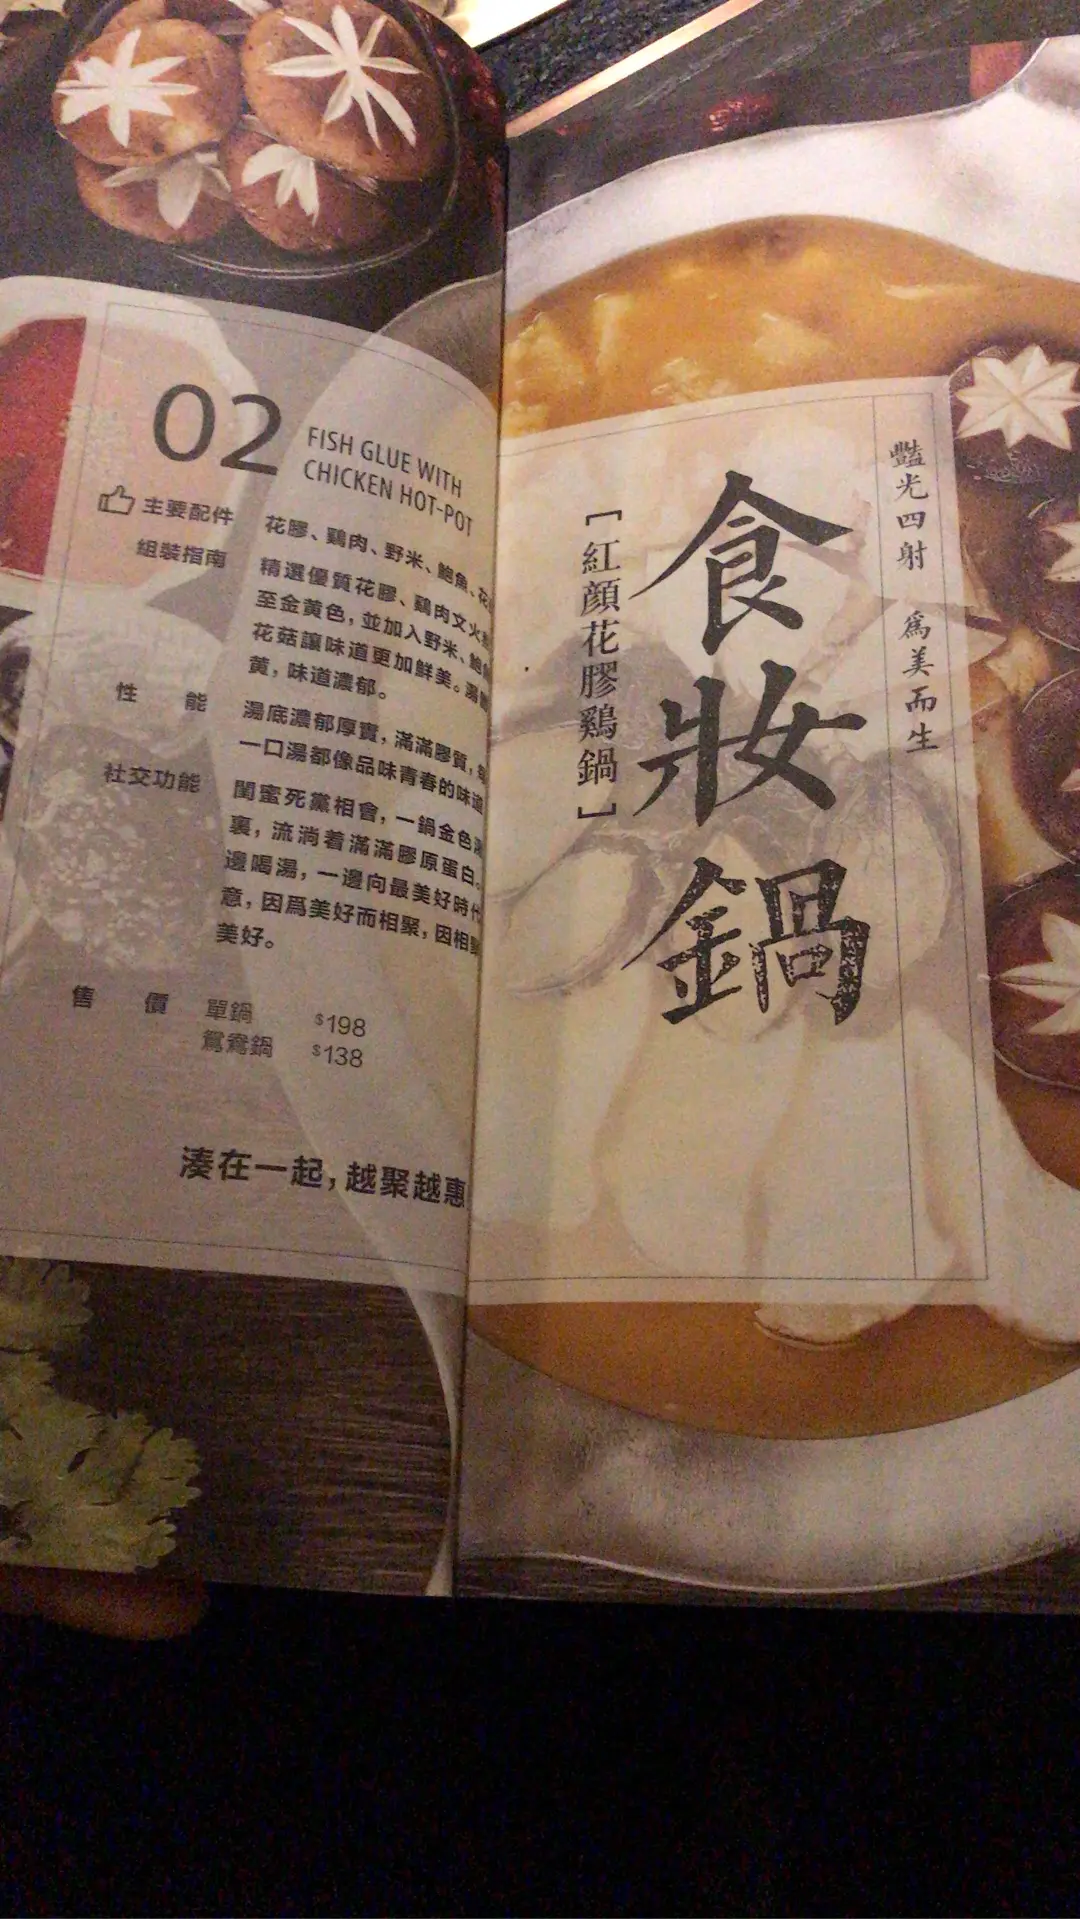 02
FISH GLUE WITH
CHICKEN HOT-POT
主要配件
花膠、鷄肉、野米、鮑魚、花
組裝指南
精選優質花膠、鷄肉文火
至金黄色，並加入野米、鮑
花菇讓味道更加鮮美。湯
黄，味道濃郁。
性 能
湯底濃郁厚實，滿滿膠質，每
一口湯都像品味青春的味道
社交功能
閨蜜死黨相會，一鍋金色
裏，流淌着滿滿膠原蛋白。
邊喝湯，一邊向最美好時代
意，因爲美好而相聚，因相聚
美好。
售 價
單鍋 $198
鴛鴦鍋 $138
湊在一起，越聚越惠
豔光四射 爲美而生
食妝鍋
[紅顔花膠鷄鍋]